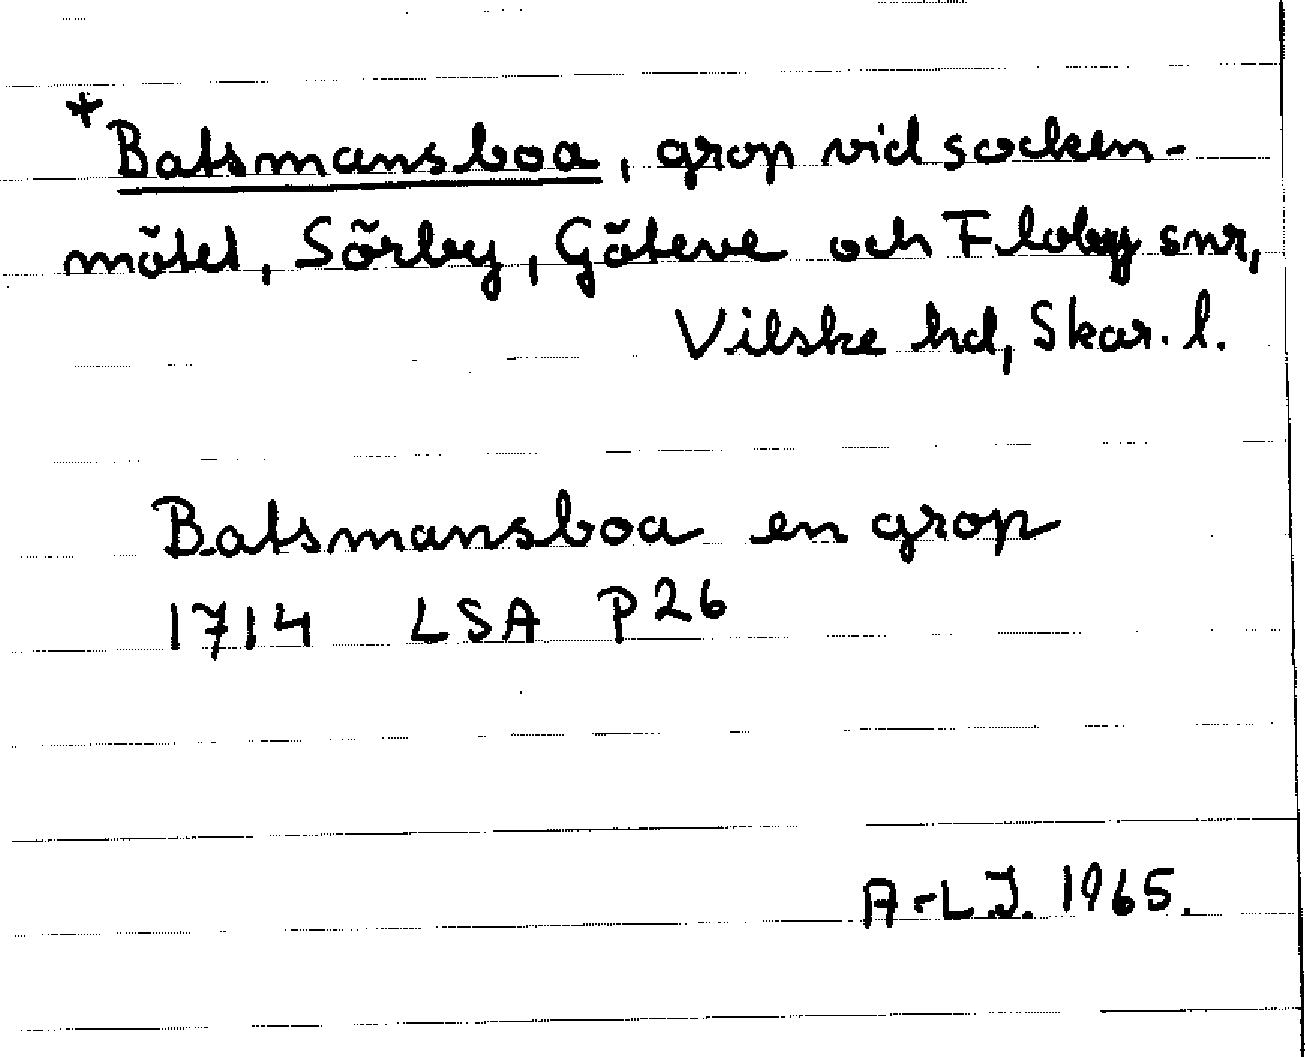 *Batsmansboa, grop vid socken-
mötet, Sörby, Göteve och Floby snr,
Vilske hd, Skar. l.
Batsmansboa en grop
1714 LSA P26
A-L.J. 1965.